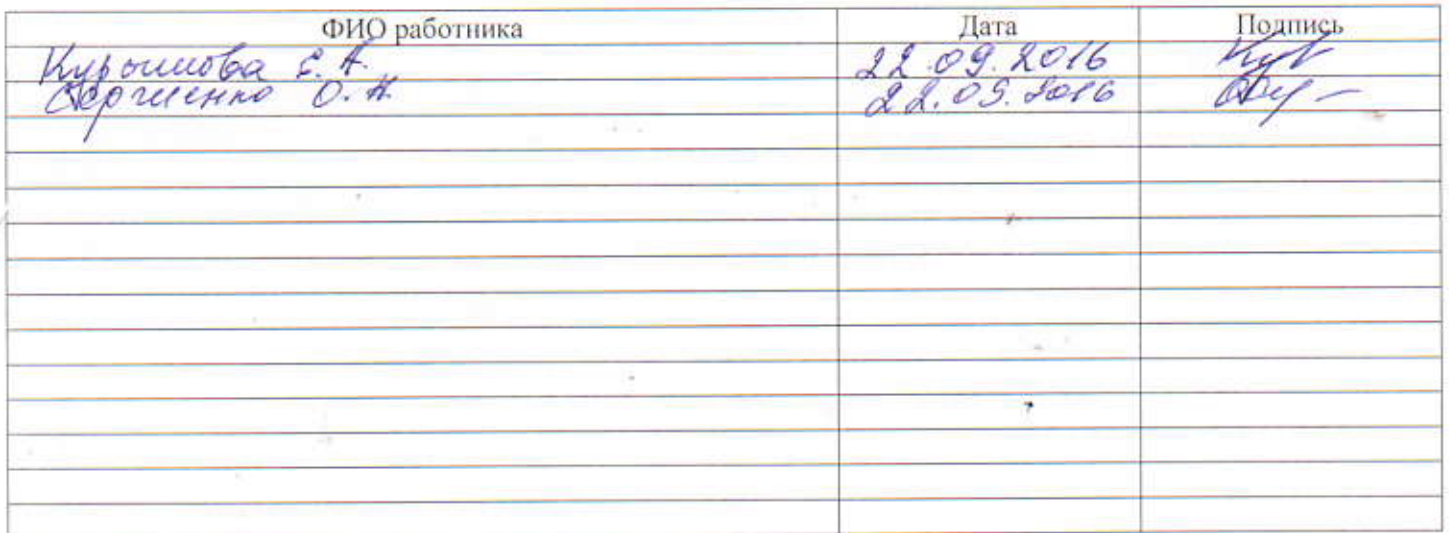 ФИО работника Дата Подпись
С. А. 22.09.2016
Сергиенко О. Н. 22.09.2016